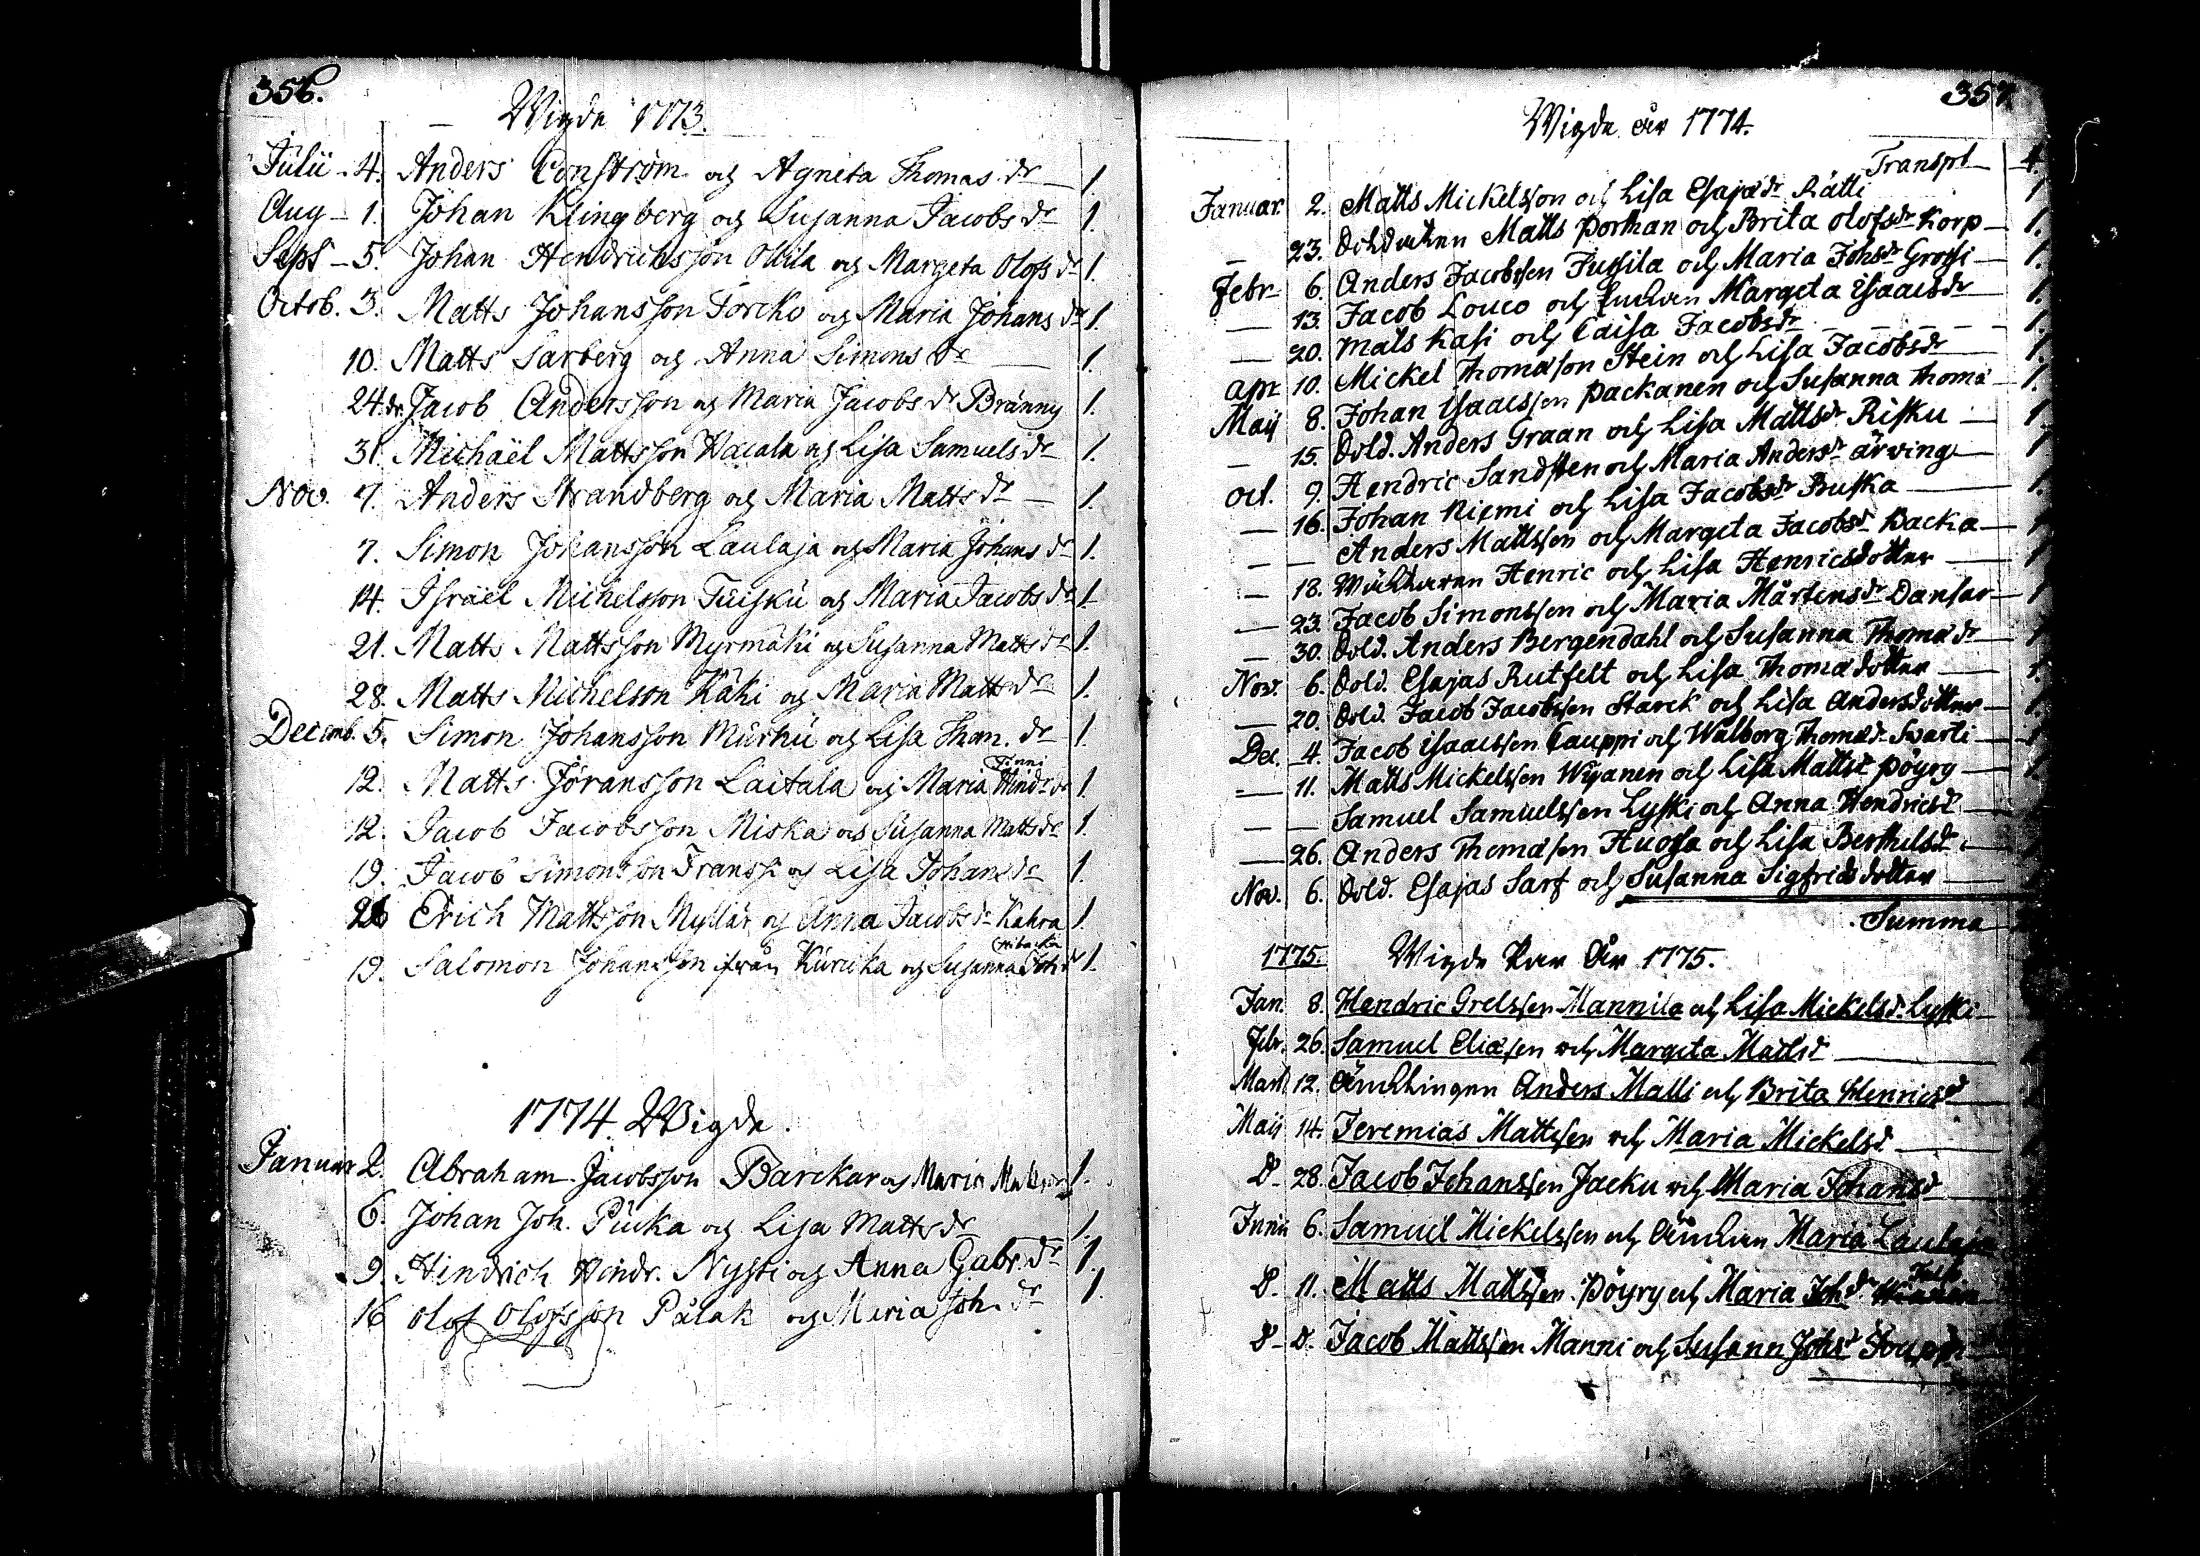 356.
Wigde 1773.
Julii - 4. Anders Conström och Agneta Thomas dr — 1.
Aug - 1. Johan Klingberg och Susanna Jacobs dr 1.
Sept - 5. Johan Hendrichsson Ollila och Margeta Olofs dr 1.
Octob. 3. Matts Johansson Torcko och Maria Johans dr 1.
10. Matts Sarberg och Anna Simons dr — 1.
24. Jacob Andersson och Maria Jacobs dr Bränny 1.
31. Michaël Mattsson Wacala och Lisa Samuels dr 1.
Nov. 7. Anders Strandberg och Maria Matts dr — 1.
7. Simon Johansson Laulaja och Maria Johans dr 1.
14. Israël Michelsson Tuisku och Maria Jacobs dr 1.
21. Matts Mattsson Myrmäki och Susanna Matts dr 1.
28. Matts Michelson Käki och Maria Matts dr 1.
Decemb. 5. Simon Johansson Murhu och Lisa Thom. dr 1.
Finni
12. Matts Jöransson Laitala och Maria Hindr. dr 1.
12. Jacob Jacobsson Miska och Susanna Matts dr 1.
19. Jacob Simonsson Franssi och Lisa Johans dr 1.
26 Erich Mattsson Myllär och Anna Jacobs dr Kahra 1.
19. Salomon Johansson ifrån Kuricka och Susanna Joh. dr 1.
1774 Wigde.
Januar 2. Abraham Jacobsson Barckar och Maria 1.
6. Johan Joh. Pucka och Lisa Matts dr 1.
9. Hindrich Hindr. Nysti och Anna Gabr. dr 1.
16 Olof Olofsson Pålak och Maria Joh. dr 1.
357.
Wigde år 1774.
Transpt — 4.
Januar. 2. Matts Mickelsson och Lisa Esajædr Rätti 1
— 23. Matts Porthan och Brita Olofsdr Korp — 1.
Febr 6. Anders Jacobssen Jussila och Maria Johsdr Grossi — 1.
— 13. Jacob Louco och Margeta Isaacsdr 1.
— 20. Mats Kasi och Caisa Jacobsdr — 1.
apr 10. Mickel Thomasson Stein och Lisa Jacobsdr 1
Maij 8. Johan Isaacssen Packanen och Susanna Thomæ — 1.
— 15. Sold. Anders Graan och Lisa Mattsdr Risku — 1
oct. 9. Hendric Sandsten och Maria Andersdr ärving — 1
— 16. Johan Niemi och Lisa Jacobsdr Buska — 1.
— — Anders Mattssen och Margeta Jacobsdr Backa — 1
— 18. Henric och Lisa Henricsdotter — 1
— 23. Jacob Simonssen och Maria Mårtensdr Dansar — 1
— 30. Sold. Anders Bergendahl och Susanna Thomædr — 1
Nov. 6. Sold. Esajas Rutfelt och Lisa Thomædotter — 1.
— 20. Sold. Jacob Jacobssen Starck och Lisa Andersdotter — 1.
Dec. 4. Jacob Isaacssen Cauppi och Walborg Thomædr Swarti — 1
— 11. Matts Mickelssen Wijanen och Lisa Mattsdr Pöyry — 1.
— — Samuel Samuelssen Lyski och Anna Hendricsdr —
— 26. Anders Thomæsen Huossa och Lisa Berthelsdr —
Nov. 6. Sold. Esajas Sarf och Susanna Sigfrids dotter —
Summa
1775. Wigde Par År 1775.
Jan. 8. Hendric Grelssen Mannila och Lisa Mickelsdr Lyski —
Febr. 26. Samuel Eliæsen och Margeta Mattsdr —
Mart. 12. Änklingen Anders Malli och Brita Henricsdr —
Maij 14. Jeremias Mattssen och Maria Mickelsdr —
D 28. Jacob Johanssen Jacku och Maria Johansdr —
Junii 6. Samuel Mickelssen och Änkan Maria Laulaja
D. 11. Matts Mattssen Pöyry och Maria Johsdr
D. D. Jacob Mattssen Manni och Susann Johsdr